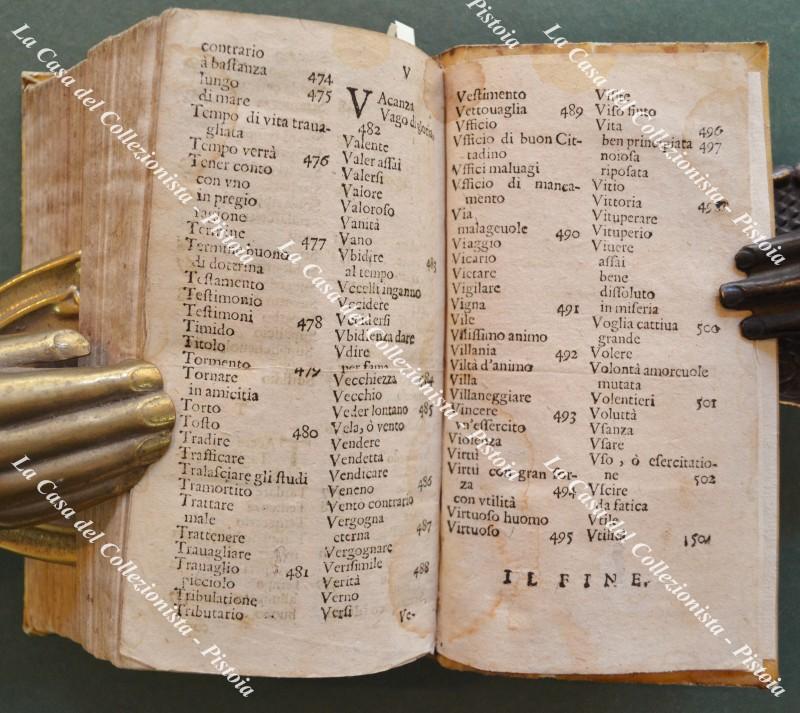 contrario
à bastanza
lungo 474
di mare 475
Tempo di vita traua-
gliata
Tempo verrà
Tener conto 476
con vno
in pregio
ragione
Termine
Termini buono 477
di dottrina
Testamento
Testimonio
Testimoni
Timido 478
Titolo
Tormento
Tornare 479
in amicitia
Torto
Tosto
Tradire 480
Trafficare
Tralasciare gli studi
Tramortito
Trattare
male
Trattenere
Trauagliare
Trauaglio
picciolo 481
Tribulatione
Tributario
V
VAcanza
Vago di gloria
482
Valente
Valer assai
Valersi
Valore
Valoroso
Vanità
Vano
Vbidire 483
al tempo
Vccelli inganno
Vccidere
Vccidersi
Vbidienza dare
Vdire
per fama
Vecchiezza 484
Vecchio
Veder lontano 485
Vela, ò vento
Vendere
Vendetta
Vendicare
Veneno 486
Vento contrario
Vergogna
eterna 487
Vergognare
Verisimile 488
Verità
Verno
Versi
Ve-
Vestimento
Vettouaglia 489
Vfficio
Vfficio di buon Cit-
tadino
Vffici maluagi
Vfficio di manca-
mento
Via
malageuole 490
Viaggio
Vicario
Vietare
Vigilare
Vigna 491
Vile
Vilissimo animo
Villania 492
Viltà d'animo
Villa
Villaneggiare
Vincere 493
vn'essercito
Violenza
Virtù
Virtù con gran for-
za 494
con vtilità
Virtuoso huomo
Virtuoso 495
Viso finto
Vita 496
ben principiata 497
noiosa
riposata
Vitio
Vittoria 498
Vituperare
Vituperio
Viuere
assai
bene
dissoluto
in miseria
Voglia cattiua 500
grande
Volere
Volontà amoreuole
mutata
Volentieri 501
Voluttà
Vsanza
Vsare
Vso, ò esercitatio-
ne 502
Vscire
da fatica
IL FINE.
La Casa del Collezionista - Pistoia
La Casa del Collezionista - Pistoia
La Casa del Collezionista - Pistoia
La Casa del Collezionista - Pistoia
La Casa del Collezionista - Pistoia
Pistoia